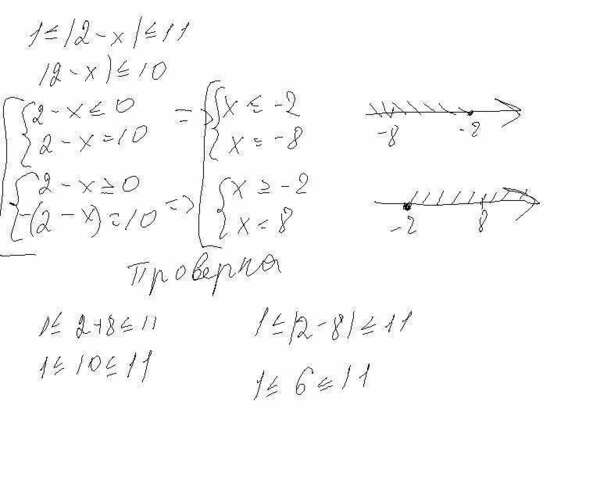 1 ≤ |2 - x| ≤ 11
|2 - x| ≤ 10
2 - x ≤ 0
2 - x = 10
=>
x ≤ -2
x = -8
-8 -2
2 - x ≥ 0
-(2 - x) = 10
=>
x ≥ -2
x = 8
-2 8
Проверка
1 ≤ 2+8 ≤ 11
1 ≤ 10 ≤ 11
1 ≤ |2 - 8| ≤ 11
1 ≤ 6 ≤ 11